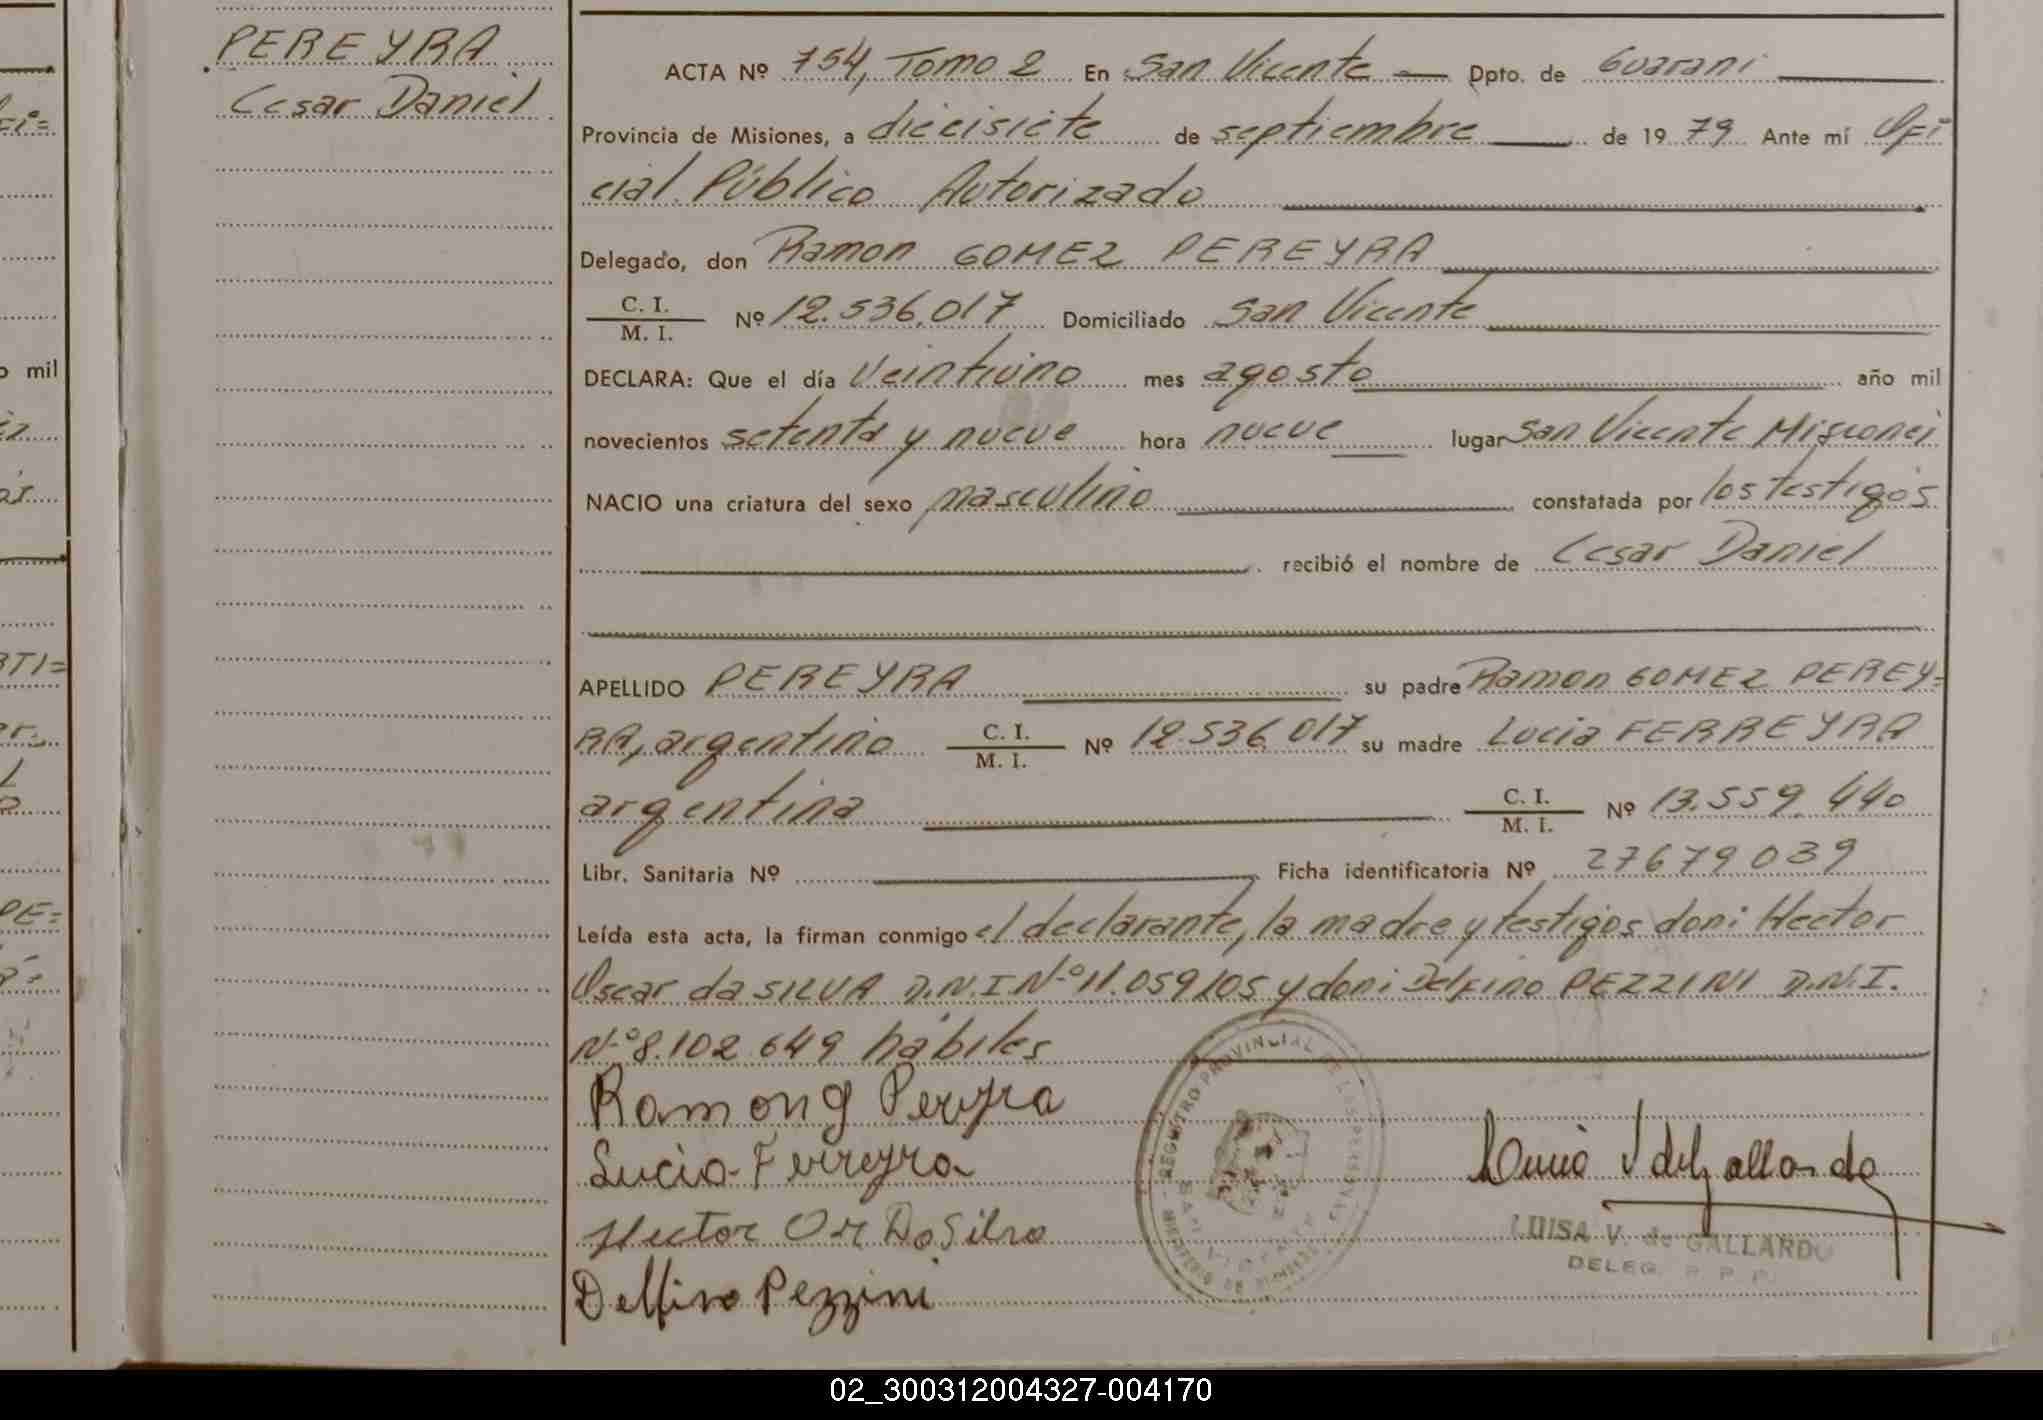 PEREYRA
Cesar Daniel
ACTA Nº 754, Tomo 2 En San Vicente Dpto. de Guarani
Provincia de Misiones, a diecisiete de septiembre de 1979 Ante mí Ofi
cial Público Autorizado
Delegado, don Ramon GOMEZ PEREYRA
C. I.
M. I. Nº 12.536.017 Domiciliado San Vicente
DECLARA: Que el día Veintiuno mes agosto año mil
novecientos setenta y nueve hora nueve lugar San Vicente Misiones
NACIO una criatura del sexo masculino constatada por los testigos
recibió el nombre de Cesar Daniel
APELLIDO PEREYRA su padre Ramon GOMEZ PEREY=
RA, argentino C. I. M. I. Nº 12.536.017 su madre Lucia FERREYRA
argentina C. I. M. I. Nº 13.559.440
Libr. Sanitaria Nº Ficha identificatoria Nº 27679039
Leída esta acta, la firman conmigo el declarante, la madre y testigos don: Hector
Oscar da SILVA D.N.I Nº 11.059.105 y don: Delfino PEZZINI D.N.I.
Nº 8.102.649 hábiles
Ramon G Pereyra
Lucia Ferreyra
Hector Or DaSilva
Delfino Pezzini
REGISTRO PROVINCIAL DE LAS PERSONAS
SAN VICENTE
LUISA V. de GALLARDO
DELEG. R. P. P.
o mil
02_300312004327-004170